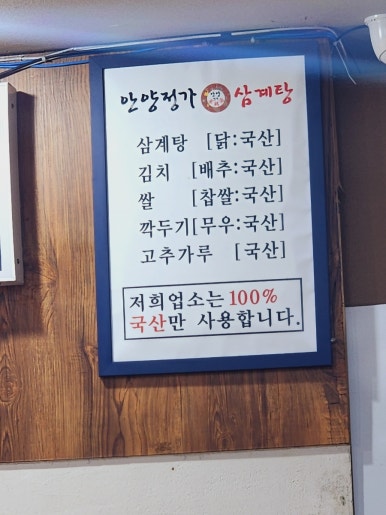 안양정가 삼계탕
삼계탕 [닭:국산]
김치 [배추:국산]
쌀 [찹쌀:국산]
깍두기[무우:국산]
고추가루 [국산]
저희업소는 100%
국산만 사용합니다.